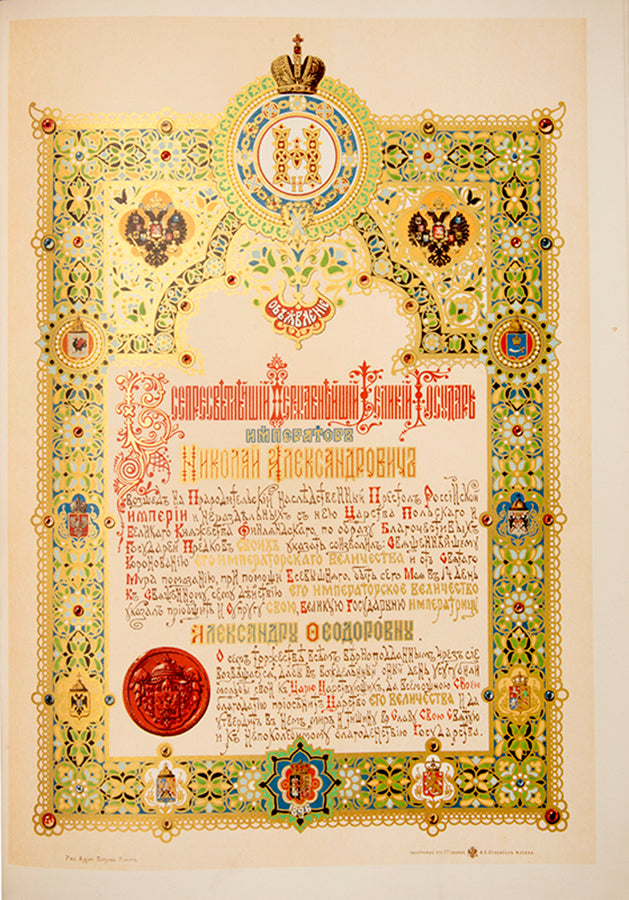 Н
II
ОБЪЯВЛЕНІЕ
ВСЕПРЕСВѢТЛѢЙШІЙ ДЕРЖАВНѢЙШІЙ ВЕЛИКІЙ ГОСУДАРЬ
ИМПЕРАТОРЪ
НИКОЛАЙ АЛЕКСАНДРОВИЧЪ
ВОЗШЕДЪ НА ПРАРОДИТЕЛЬСКІЙ НАСЛѢДСТВЕННЫЙ ПРЕСТОЛЪ РОССІЙСКОЙ
ИМПЕРІИ И НЕРАЗДѢЛЬНЫХЪ СЪ НЕЮ ЦАРСТВА ПОЛЬСКАГО И
ВЕЛИКАГО КНЯЖЕСТВА ФИНЛЯНДСКАГО ПО ОБРАЗУ БЛАГОЧЕСТИВЫХЪ
ГОСУДАРЕЙ ПРЕДКОВЪ СВОИХЪ УКАЗАТЬ СОИЗВОЛИЛЪ: СВЯЩЕННѢЙШЕМУ
КОРОНОВАНІЮ ЕГО ИМПЕРАТОРСКАГО ВЕЛИЧЕСТВА И ОТЪ СВЯТАГО
МИРА ПОМАЗАНІЮ, ПРИ ПОМОЩИ ВСЕВЫШНЯГО, БЫТЬ СЕГО МАЯ ВЪ 14 ДЕНЬ
КЪ СВЯЩЕННОМУ СЕМУ ДѢЙСТВІЮ ЕГО ИМПЕРАТОРСКОЕ ВЕЛИЧЕСТВО
УКАЗАЛЪ ПРІОБЩИТЬ И СУПРУГУ СВОЮ, ВЕЛИКУЮ ГОСУДАРЫНЮ ИМПЕРАТРИЦУ
АЛЕКСАНДРУ ѲЕОДОРОВНУ.
О СЕМЪ ТОРЖЕСТВѢ ВСѢМЪ ВѢРНОПОДДАННЫМЪ ЧРЕЗЪ СІЕ
ВОЗВѢЩАЕТСЯ, ДАБЫ ВЪ ВОЖДЕЛѢННЫЙ ОНЫЙ ДЕНЬ УСУГУБИЛИ
МОЛЬБЫ СВОИ КЪ ЦАРЮ ЦАРСТВУЮЩИХЪ, ДА ВСЕМОЩНОЮ СВОЕЮ
БЛАГОДАТІЮ ПРІОСѢНИТЪ ЦАРСТВО ЕГО ВЕЛИЧЕСТВА И ДА
УТВЕРДИТЪ ВЪ НЕМЪ МИРЪ И ТИШИНУ ВО СЛАВУ СВОЮ СВЯТУЮ
И КЪ НЕПОКОЛЕБИМОМУ БЛАГОДЕНСТВІЮ ГОСУДАРСТВА.
МОСКВА